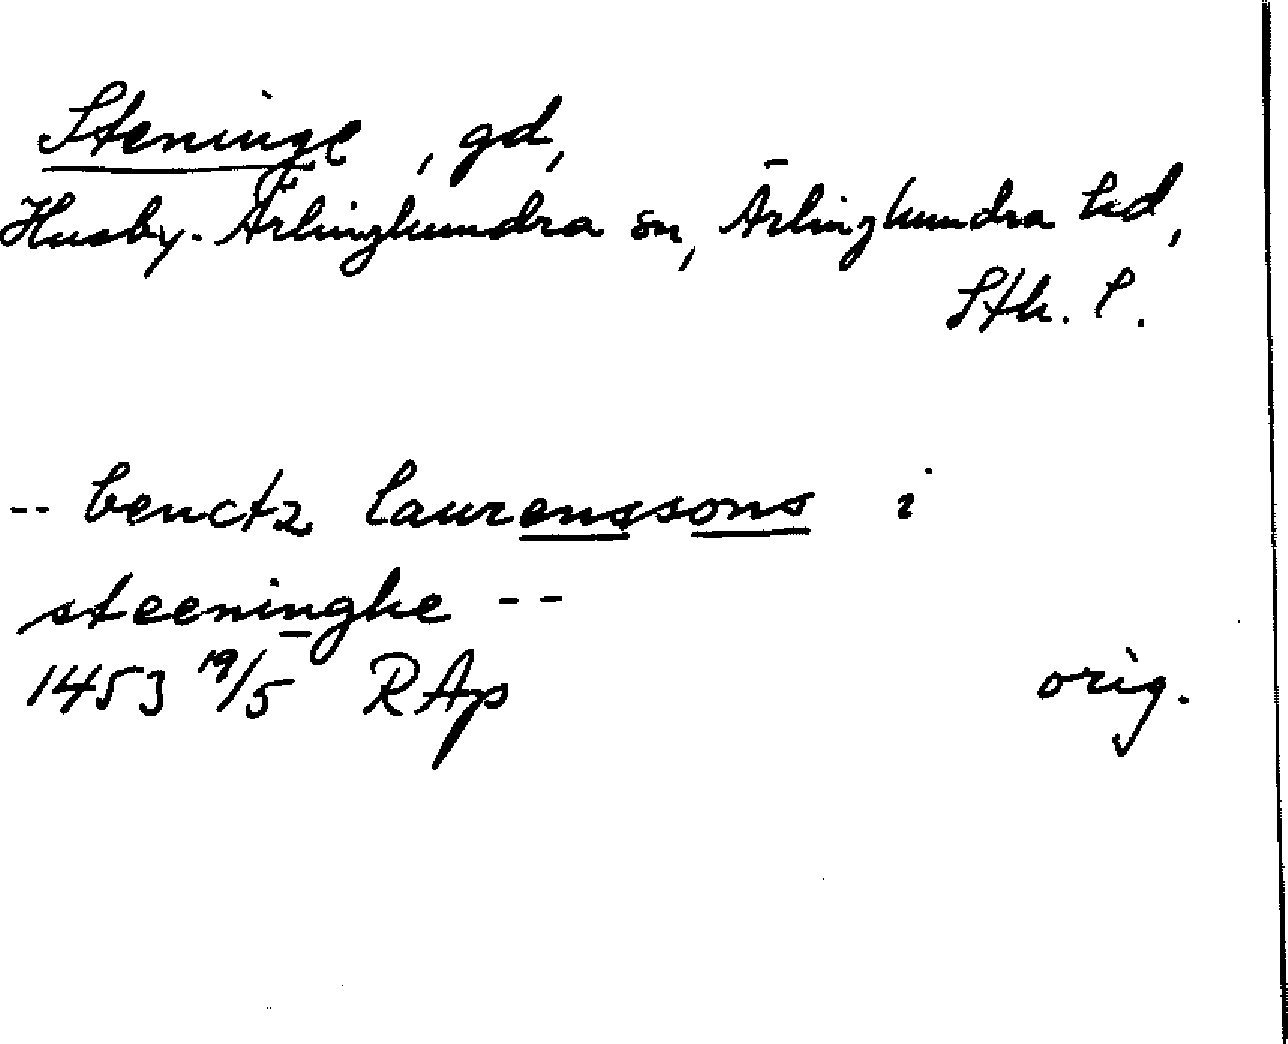 Steninge, gd,
Husby-Ärlinghundra sn, Ärlinghundra hd,
Sth. l.
-- benctz laurenssons i
steeninghe --
1453 19/5 RAp orig.